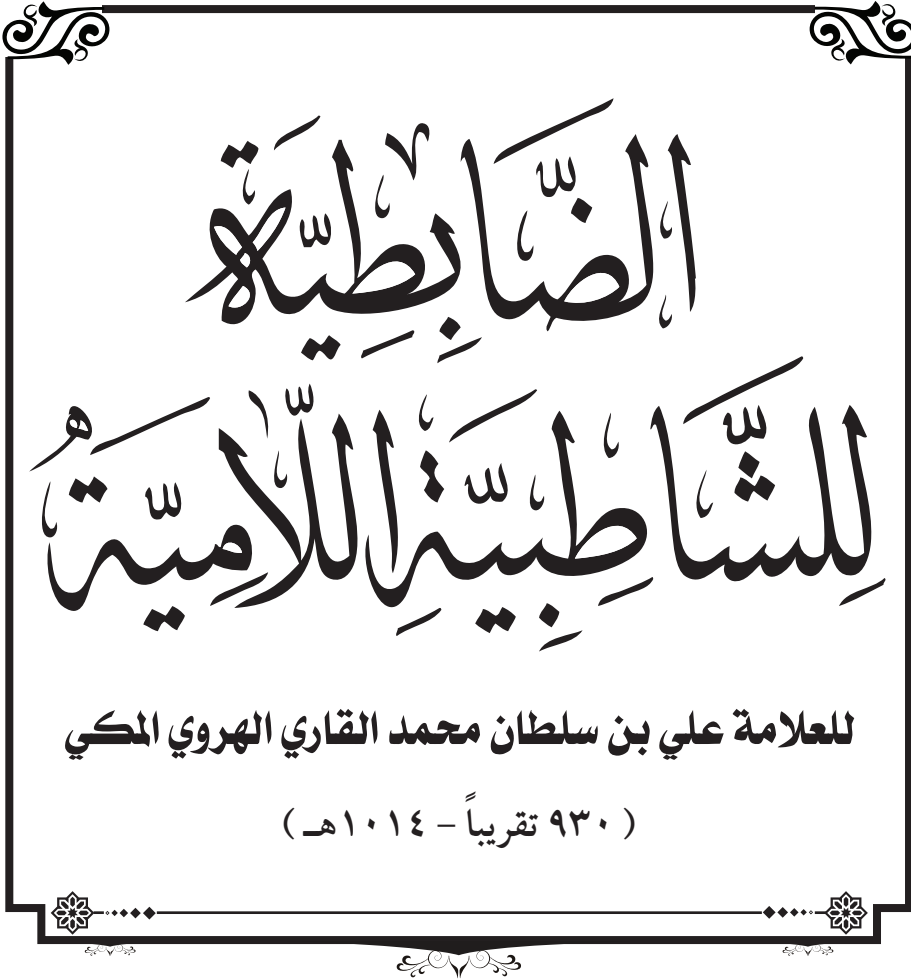 الضَّابِطِيَّة
لِلشَّاطِبِيَّةِ اللَّامِيَّة
للعلامة علي بن سلطان محمد القاري الهروي المكي
( ٩٣٠ تقريباً – ١٠١٤هـ )